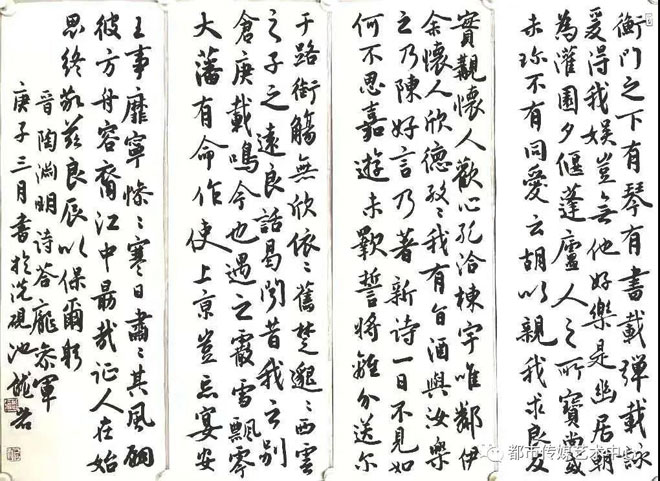 衡門之下有琴有書載彈載詠
爰得我娛豈無他好樂是幽居朝
為灌園夕偃蓬廬人之所寶尚或
未珍不有同愛云胡以親我求良友
實覯懷人歡心孔洽棟宇唯鄰伊
余懷人欣德孜〻我有旨酒與汝樂
之乃陳好言乃著新詩一日不見如
何不思嘉遊未斁誓將離分送爾
于路銜觴無欣依〻舊楚邈〻西雲
之子之遠良話曷聞昔我云別
倉庚載鳴今也遇之霰雪飄零
大藩有命作使上京豈忘宴安
王事靡寧慘〻寒日肅〻其風翩
彼方舟容裔江中勗哉征人在始
思終敬茲良辰以保爾躬
晉陶淵明詩答龐參軍
庚子三月書於洗硯池
都市传媒艺术中心